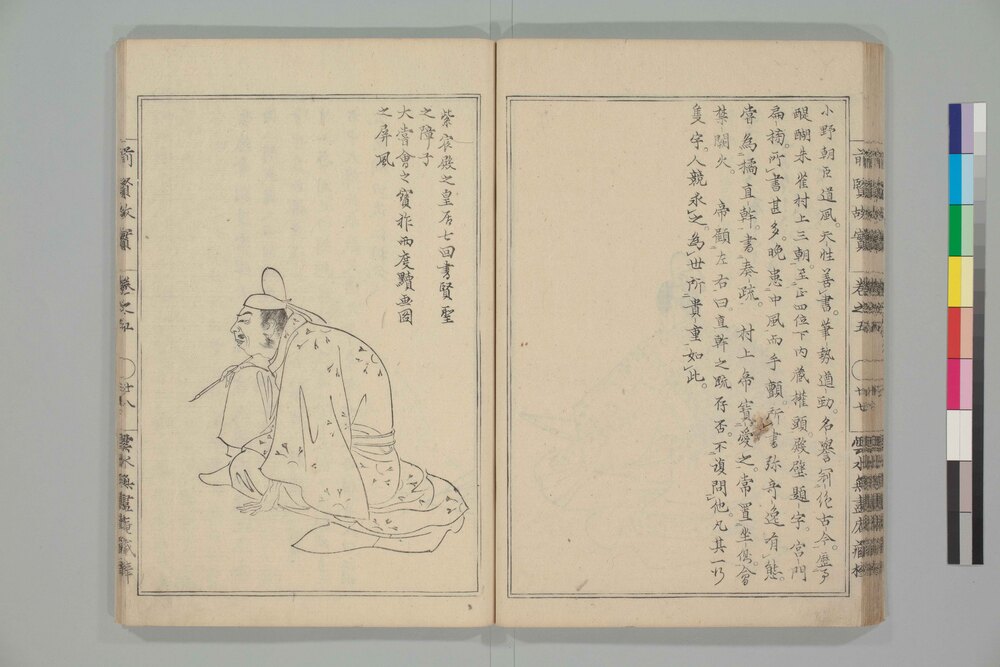 小野朝臣道風。天性善書。筆勢遒勁。名譽冠絶古今。歷事
醍醐朱雀村上三朝。至正四位下内藏權頭殿壁題字。宮門
扁摘。所書甚多。晩患中風而手顫。所書弥奇逸有態。
嘗為橘直幹。書奏疏。村上帝寳愛之。常置坐側。會
禁闕火。帝顧左右曰。直幹之疏存否。不復問他。凡其一行
隻字。人競求之。為世所貴重如此。
紫宸殿之皇居七回書賢聖
之障子
大嘗會之寳祚兩度黷画図
之屏風
前賢故實
卷之五
廿七
前賢故實
卷之五
廿八